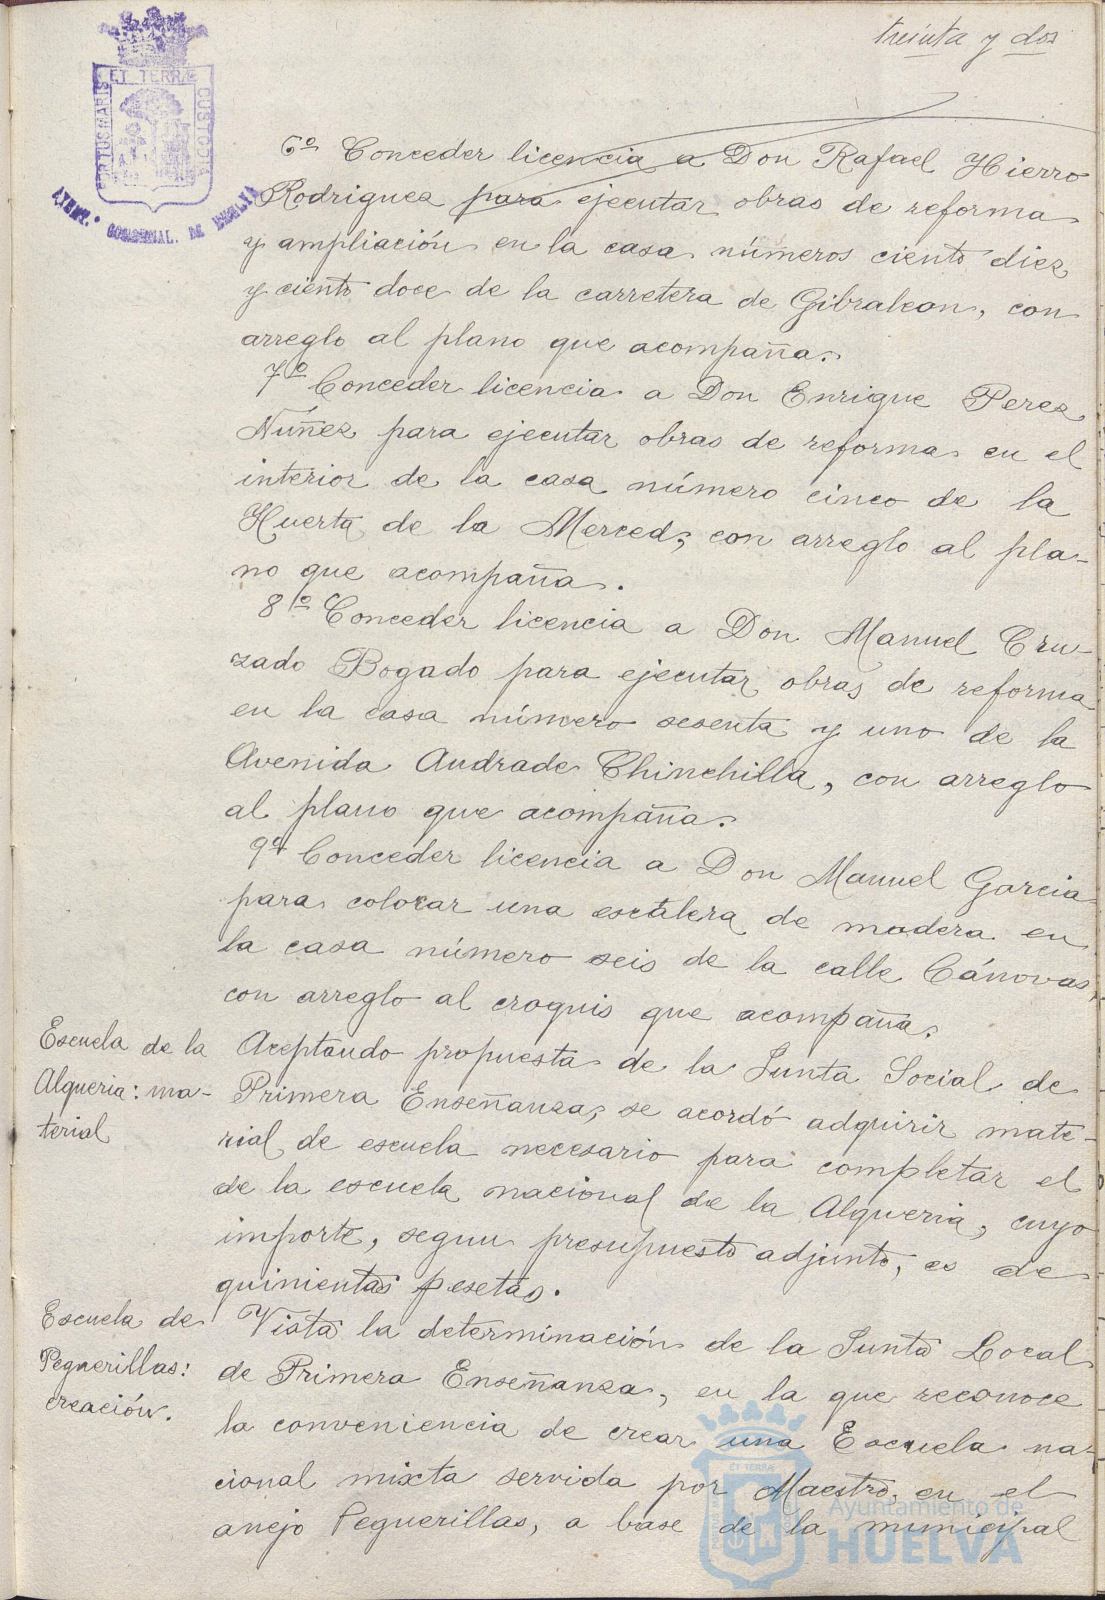 treinta y dos
PORTUS MARIS ET TERRÆ CUSTODIA
AYUNT.º CONSTITUCIAL. DE HUELVA
6º Conceder licencia a Don Rafael Hierro
Rodriguez para ejecutar obras de reforma
y ampliación en la casa números ciento diez
y ciento doce de la carretera de Gibraleon, con
arreglo al plano que acompaña.
7º Conceder licencia a Don Enrique Perez
Nuñez para ejecutar obras de reforma en el
interior de la casa número cinco de la
Huerta de la Merced, con arreglo al pla-
no que acompaña.
8º Conceder licencia a Don Manuel Cru-
zado Bogado para ejecutar obras de reforma
en la casa número sesenta y uno de la
Avenida Andrade Chinchilla, con arreglo
al plano que acompaña.
9º Conceder licencia a Don Manuel Garcia
para colocar una escalera de madera en
la casa número seis de la calle Cánovas,
con arreglo al croquis que acompaña.
Escuela de la
Alqueria: ma-
terial
Aceptando propuesta de la Junta Social de
Primera Enseñanza, se acordó adquirir mate-
rial de escuela necesario para completar el
de la escuela nacional de la Alqueria, cuyo
importe, segun presupuesto adjunto, es de
quinientas pesetas.
Escuela de
Peguerillas:
creación.
Vista la determinación de la Junta Local
de Primera Enseñanza, en la que reconoce
la conveniencia de crear una Escuela na-
cional mixta servida por Maestro, en el
anejo Peguerillas, a base de la municipal
ET TERRÆ
Ayuntamiento de
HUELVA